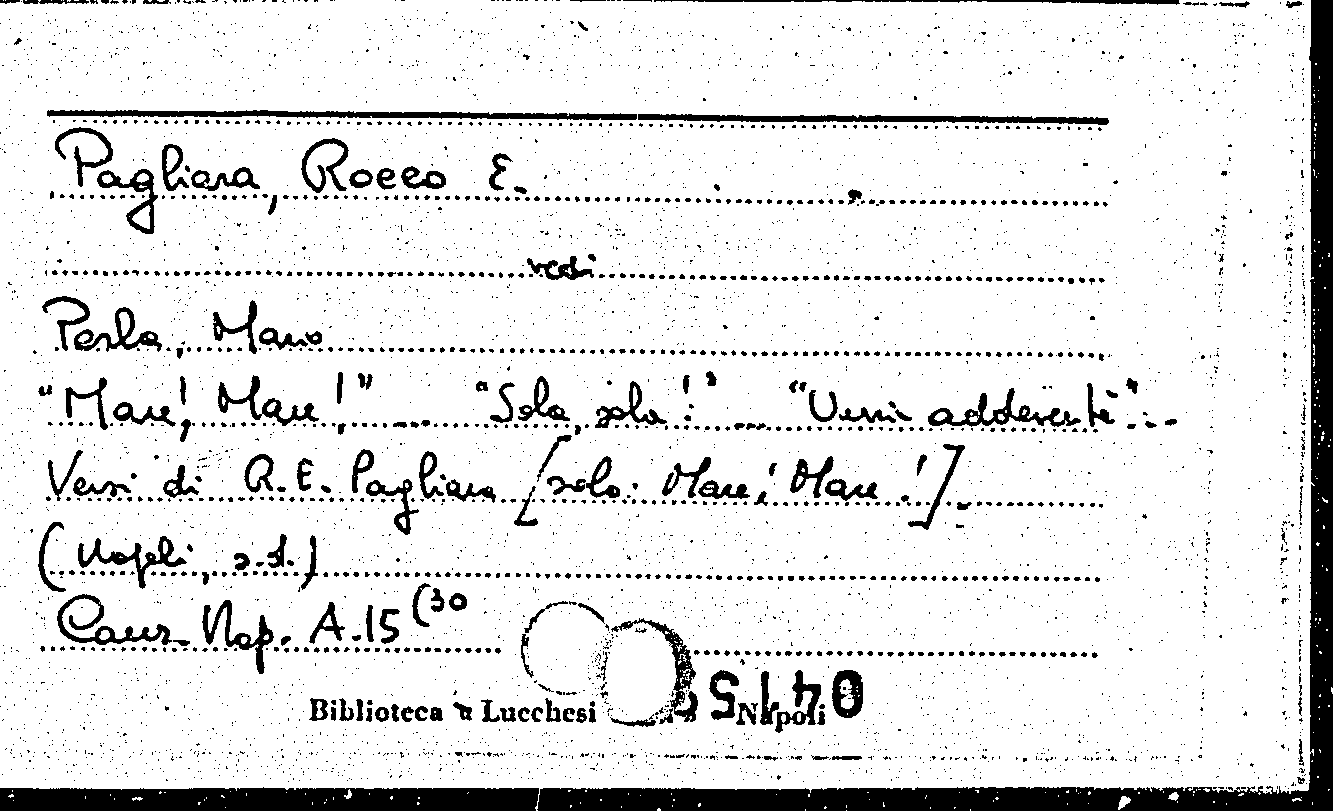 Pagliara, Rocco E.
vedi
Perla, Mario
"Mare!, Mare!" ... "Sola, sola!" ... "Vurria addeventà"...
Versi di R. E. Pagliara [solo: Mare! Mare!].
(Napoli, s.d.)
Canz. Nap. A.15 (30
Biblioteca Lucchesi Napoli